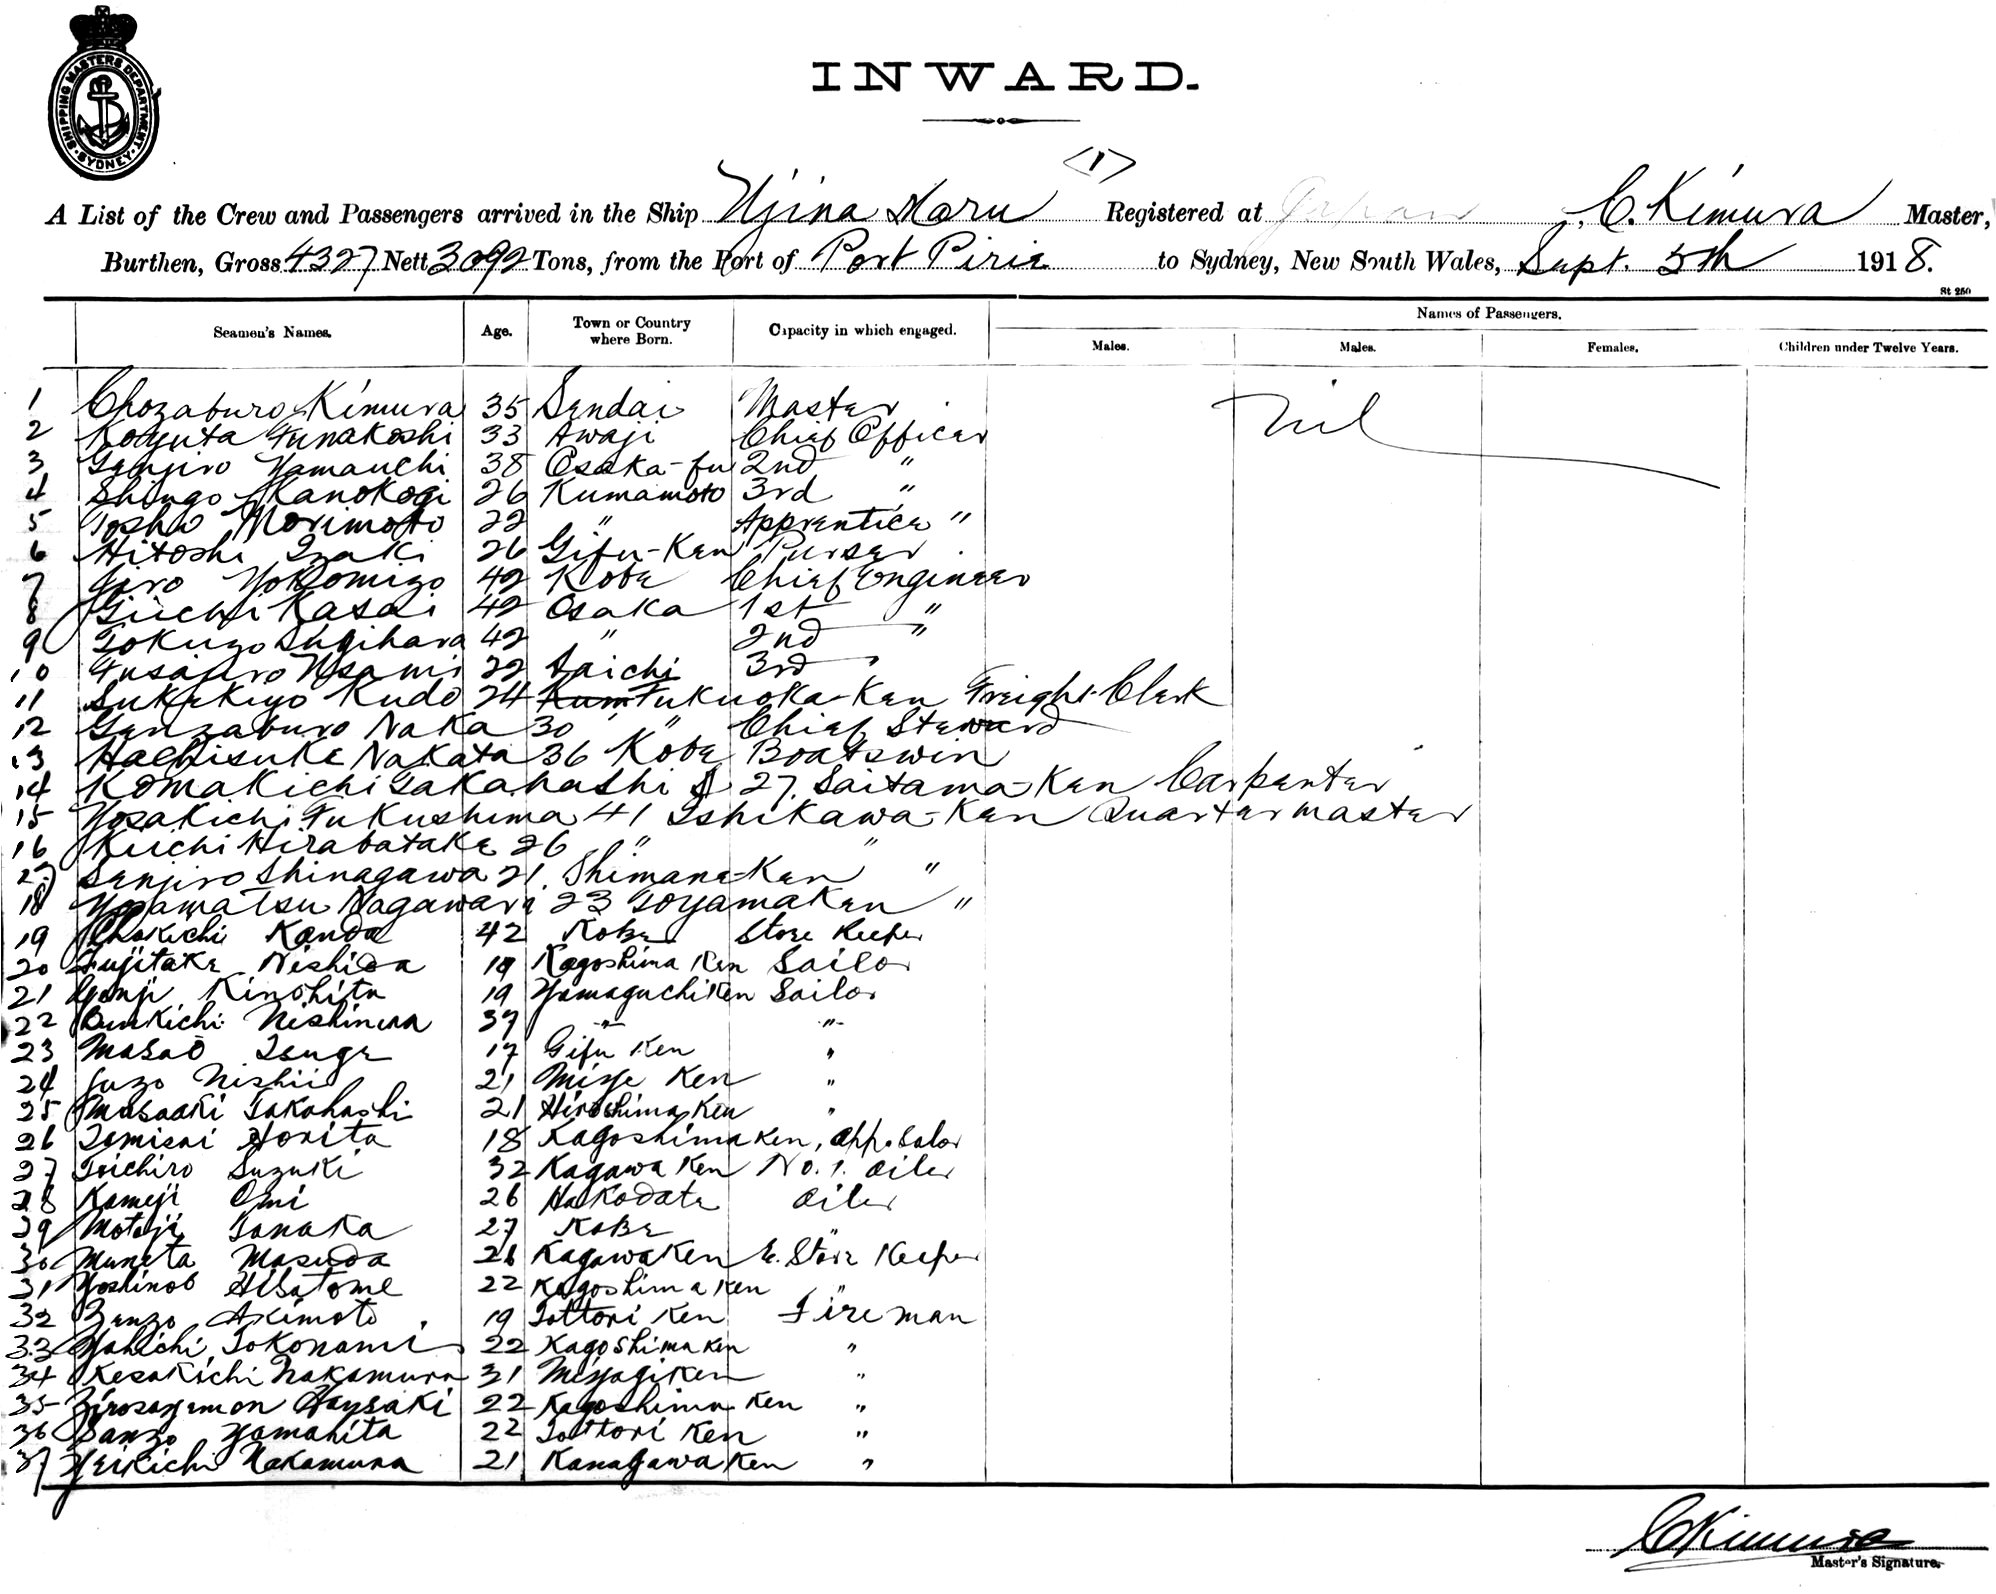 SHIPPING MASTERS DEPARTMENT. SYDNEY
INWARD.
<1>
A List of the Crew and Passengers arrived in the Ship Ujina Maru Registered at Japan, C. Kimura Master,
Burthen, Gross 4327 Nett 3092 Tons, from the Port of Port Pirie to Sydney, New South Wales, Sept. 5th 1918.
St 250
Seamen's Names. Age. Town or Country where Born. Capacity in which engaged. Names of Passengers.
Males. Males. Females. Children under Twelve Years.
1 Chozaburo Kimura 35 Sendai Master Nil
2 Koyuta Funakoshi 33 Awaji Chief Officer
3 Genjiro Yamauchi 38 Osaka-fu 2nd "
4 Shingo Kanokogi 26 Kumamoto 3rd "
5 Toshio Morimoto 22 " Apprentice "
6 Hitoshi Izaki 26 Gifu-Ken Purser
7 Jiro Yokomizo 42 Kobe Chief Engineer
8 Giichi Kasai 42 Osaka 1st "
9 Tokuzo Sugihara 42 " 2nd "
10 Fusajiro Usami 22 Aaichi 3rd "
11 Sukekiyo Kudo 24 Kum Fukuoka-Ken Freight Clerk
12 Genzaburo Naka 30 " " Chief Steward
13 Hachisuke Nakata 36 Kobe Boatswin
14 Komakichi Takahashi 27. Saitama-Ken Carpenter
15 Yosakichi Fukushima 41 Ishikawa-Ken Quartermaster
16 Kiichi Hirabatake 26 " "
17 Senjiro Shinagawa 21. Shimane-Ken "
18 Yosamatsu Nagawara 23 Toyamaken "
19 Chokichi Kanda 42 Kobe Store Keeper
20 Fujitake Nishida 19 Kagoshima Ken Sailor
21 Genji Kinohita 19 Yamaguchiken Sailor
22 Bunkichi Nishimura 37 " "
23 Masao Tsuge 17 Gifu Ken "
24 Juzo Nishii 21 Miye Ken "
25 Masaaki Takahashi 21 Hiroshima Ken "
26 Tomisai Horita 18 Kagoshima Ken, App. Salor
27 Toichiro Suzuki 32 Kagawa Ken No. 1. Oiler
28 Kameji Omi 26 Hakodate Oiler
29 Motoji Tanaka 27 Kobe "
30 Muneta Masuda 26 Kagawa Ken E. Store Keeper
31 Yoshinob Hisatome 22 Kagoshima Ken "
32 Zenzo Akimoto 19 Tottori Ken Fireman
33 Yahichi Tokonami 22 Kagoshima Ken "
34 Kesakichi Nakamura 31 Miyagi Ken "
35 Zirosayemon Haysaki 22 Kagoshima Ken "
36 Sanzo Yamahita 22 Tottori Ken "
37 Yeikichi Nakamura 21 Kanagawa Ken "
C Kimura
Master's Signature.